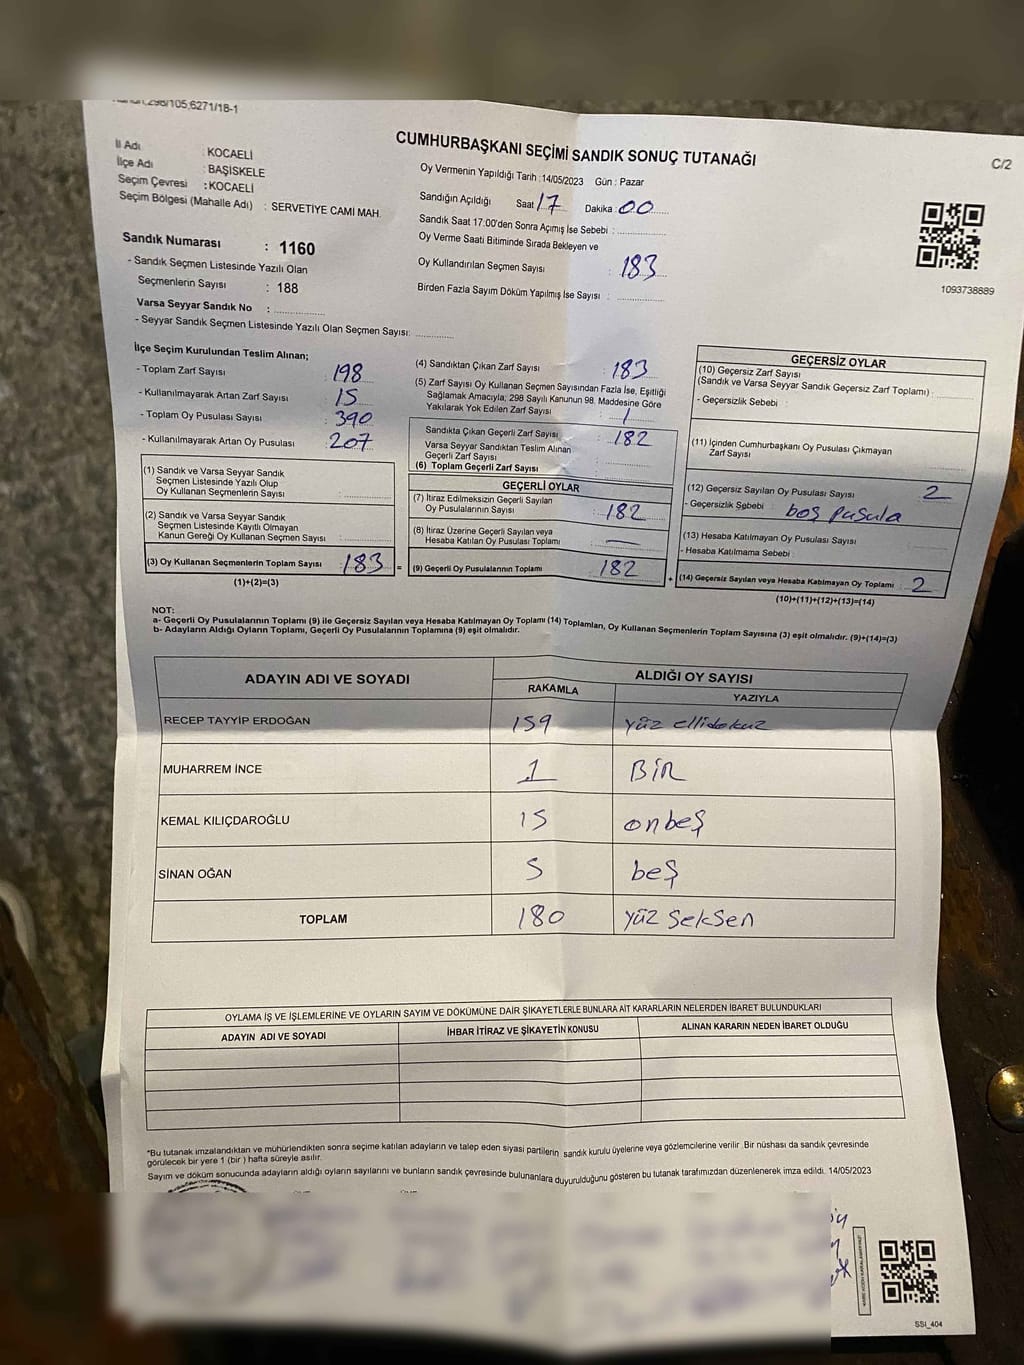 298/105,6271/18-1
CUMHURBAŞKANI SEÇİMİ SANDIK SONUÇ TUTANAĞI
C/2
İl Adı : KOCAELİ
İlçe Adı : BAŞİSKELE
Seçim Çevresi : KOCAELİ
Seçim Bölgesi (Mahalle Adı) : SERVETİYE CAMİ MAH.
Sandık Numarası : 1160
- Sandık Seçmen Listesinde Yazılı Olan
Seçmenlerin Sayısı : 188
Varsa Seyyar Sandık No : ..............
- Seyyar Sandık Seçmen Listesinde Yazılı Olan Seçmen Sayısı: ............
Oy Vermenin Yapıldığı Tarih : 14/05/2023 Gün : Pazar
Sandığın Açıldığı Saat 17 Dakika 00
Sandık Saat 17.00'den Sonra Açmış İse Sebebi : ..............
Oy Verme Saati Bitiminde Sırada Bekleyen ve
Oy Kullandırılan Seçmen Sayısı : 183
Birden Fazla Sayım Döküm Yapılmış İse Sayısı : ..............
1093738889
İlçe Seçim Kurulundan Teslim Alınan;
- Toplam Zarf Sayısı : 198
- Kullanılmayarak Artan Zarf Sayısı : 15
- Toplam Oy Pusulası Sayısı : 390
- Kullanılmayarak Artan Oy Pusulası : 207
(1) Sandık ve Varsa Seyyar Sandık
Seçmen Listesinde Yazılı Olup
Oy Kullanan Seçmenlerin Sayısı : ..............
(2) Sandık ve Varsa Seyyar Sandık
Seçmen Listesinde Kayıtlı Olmayan
Kanun Gereği Oy Kullanan Seçmen Sayısı : ..............
(3) Oy Kullanan Seçmenlerin Toplam Sayısı : 183 =
(1)+(2)=(3)
(4) Sandıktan Çıkan Zarf Sayısı : 183
(5) Zarf Sayısı Oy Kullanan Seçmen Sayısından Fazla İse, Eşitliği
Sağlamak Amacıyla; 298 Sayılı Kanunun 98. Maddesine Göre
Yakılarak Yok Edilen Zarf Sayısı : 1
Sandıkta Çıkan Geçerli Zarf Sayısı : 182
Varsa Seyyar Sandıktan Teslim Alınan
Geçerli Zarf Sayısı : ..............
(6) Toplam Geçerli Zarf Sayısı : ..............
GEÇERLİ OYLAR
(7) İtiraz Edilmeksizin Geçerli Sayılan
Oy Pusulalarının Sayısı : 182
(8) İtiraz Üzerine Geçerli Sayılan veya
Hesaba Katılan Oy Pusulası Toplamı : —
(9) Geçerli Oy Pusulalarının Toplamı : 182 +
GEÇERSİZ OYLAR
(10) Geçersiz Zarf Sayısı
(Sandık ve Varsa Seyyar Sandık Geçersiz Zarf Toplamı) : ............
- Geçersizlik Sebebi : ..............
(11) İçinden Cumhurbaşkanı Oy Pusulası Çıkmayan
Zarf Sayısı : ..............
(12) Geçersiz Sayılan Oy Pusulası Sayısı : 2
- Geçersizlik Sebebi : boş pusula
(13) Hesaba Katılmayan Oy Pusulası Sayısı : ..............
- Hesaba Katılmama Sebebi :
(14) Geçersiz Sayılan veya Hesaba Katılmayan Oy Toplamı : 2
(10)+(11)+(12)+(13)=(14)
NOT:
a- Geçerli Oy Pusulalarının Toplamı (9) ile Geçersiz Sayılan veya Hesaba Katılmayan Oy Toplamı (14) Toplamları, Oy Kullanan Seçmenlerin Toplam Sayısına (3) eşit olmalıdır. (9)+(14)=(3)
b- Adayların Aldığı Oyların Toplamı, Geçerli Oy Pusulalarının Toplamına (9) eşit olmalıdır.
ADAYIN ADI VE SOYADI
ALDIĞI OY SAYISI
RAKAMLA YAZIYLA
RECEP TAYYİP ERDOĞAN 159 yüz ellidokuz
MUHARREM İNCE 1 BİR
KEMAL KILIÇDAROĞLU 15 onbeş
SİNAN OĞAN 5 beş
TOPLAM 180 yüz seksen
OYLAMA İŞ VE İŞLEMLERİNE VE OYLARIN SAYIM VE DÖKÜMÜNE DAİR ŞİKAYETLERLE BUNLARA AİT KARARLARIN NELERDEN İBARET BULUNDUKLARI
ADAYIN ADI VE SOYADI İHBAR İTİRAZ VE ŞİKAYETİN KONUSU ALINAN KARARIN NEDEN İBARET OLDUĞU
*Bu tutanak imzalandıktan ve mühürlendikten sonra seçime katılan adayların ve talep eden siyasi partilerin sandık kurulu üyelerine veya gözlemcilerine verilir .Bir nüshası da sandık çevresinde
görülecek bir yere 1 (bir ) hafta süreyle asılır.
Sayım ve döküm sonucunda adayların aldığı oyların sayılarını ve bunların sandık çevresinde bulunanlara duyurulduğunu gösteren bu tutanak tarafımızdan düzenlenerek imza edildi. 14/05/2023
SSI_404